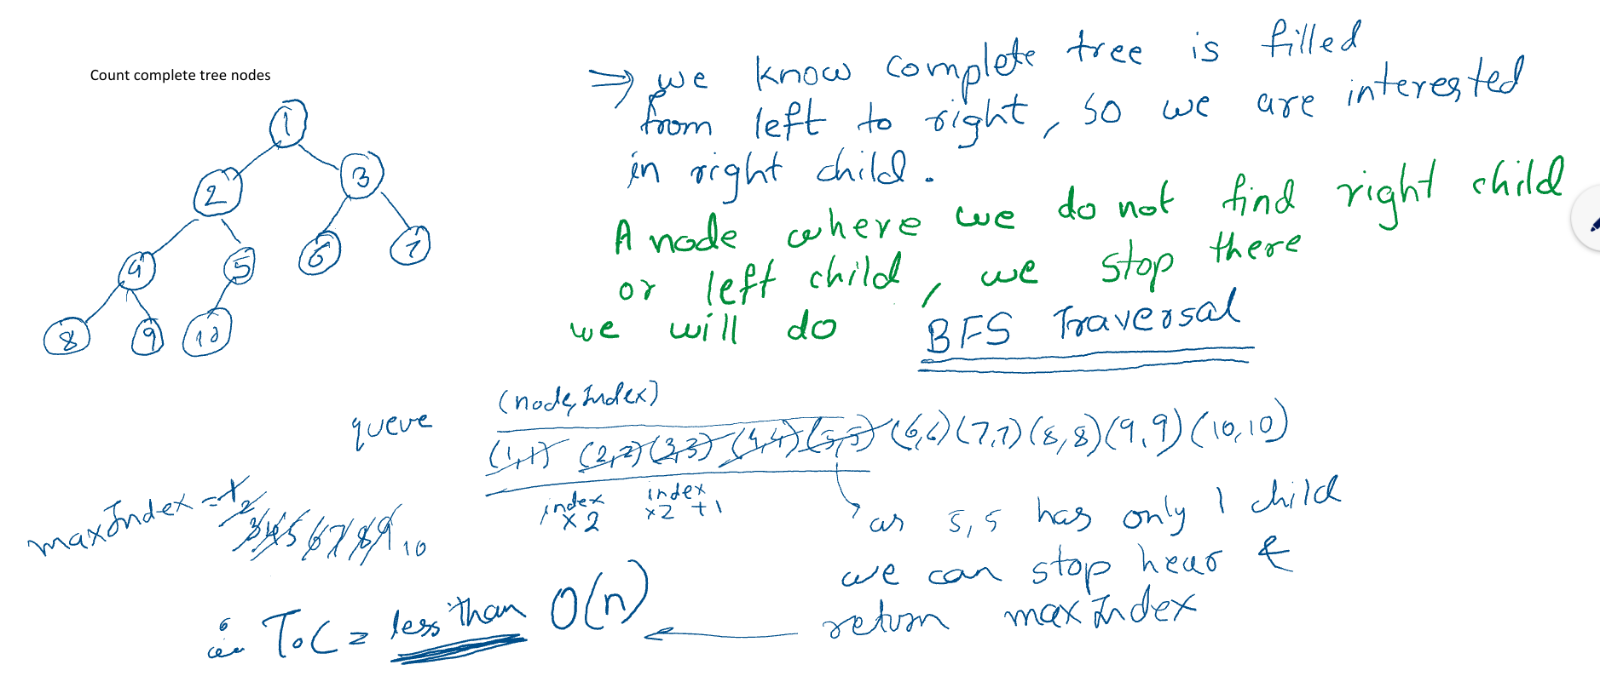 Count complete tree nodes
1
2
3
4
5
6
7
8
9
10
⇒ we know complete tree is filled
from left to right, so we are interested
in right child.
A node where we do not find right child
or left child, we stop there
we will do BFS Traversal
(node, Index)
queue
(1,1) (2,2) (3,3) (4,4) (5,5) (6,6) (7,7) (8,8) (9,9) (10,10)
index index
x2 x2 +1
maxIndex = 1 2
3 4 5 6 7 8 9 10
as 5,5 has only 1 child
we can stop hear &
return maxIndex
∴ T.C = less than O(n)